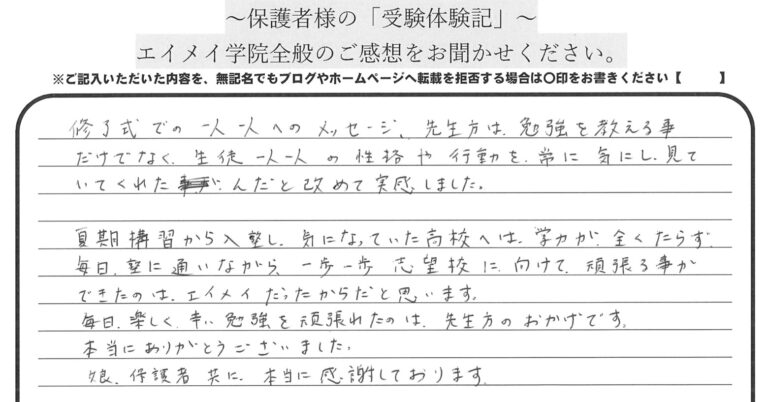 ～保護者様の「受験体験記」～
エイメイ学院全般のご感想をお聞かせください。
※ご記入いただいた内容を、無記名でもブログやホームページへ転載を拒否する場合は〇印をお書きください【　　】
修了式での一人一人へのメッセージ、先生方は、勉強を教える事
だけでなく、生徒一人一人の性格や行動を、常に気にし、見て
いてくれたんだと改めて実感しました。
夏期講習から入塾し、気になっていた高校へは、学力が、全くたらず、
毎日、塾に通いながら、一歩一歩志望校に向けて、頑張る事が
できたのは、エイメイだったからだと思います。
毎日、楽しく、辛い勉強を頑張れたのは、先生方のおかげです。
本当にありがとうございました。
娘、保護者共に、本当に感謝しております。